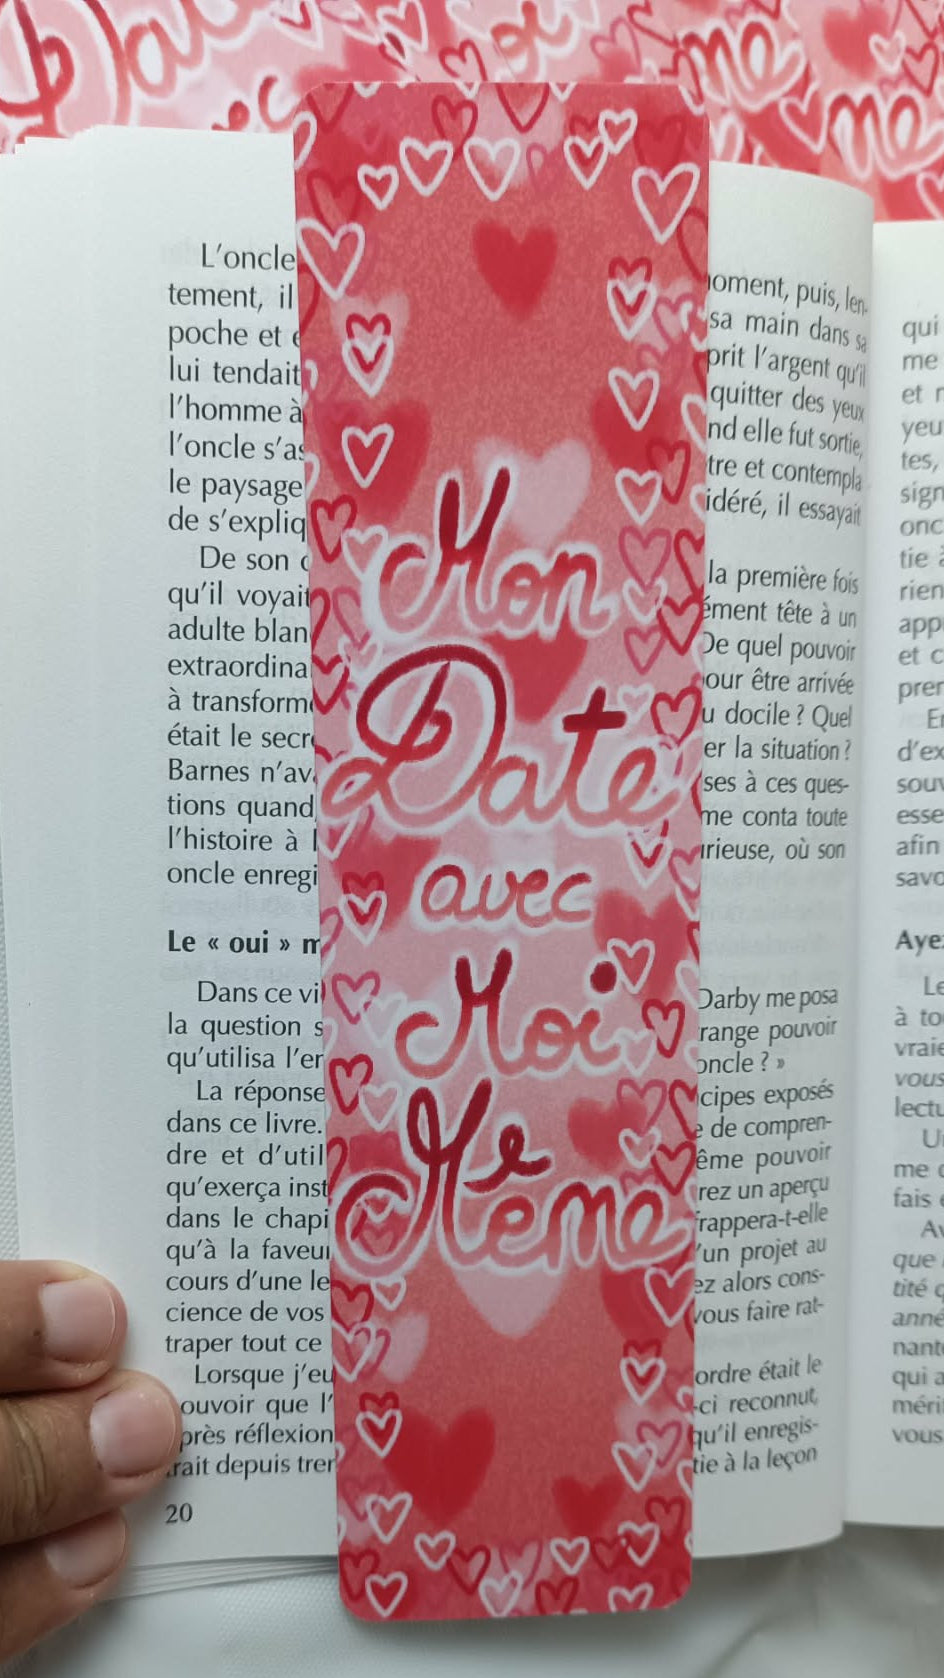 Mon
Date
avec
Moi
Même
L'oncle
tement, il
poche et
lui tendait
l'homme à
l'oncle s'as
le paysage
de s'expliq
De son
qu'il voyait
adulte blan
extraordina
à transform
était le secr
Barnes n'av
tions quand
l'histoire à
oncle enregi
Le « oui » m
Dans ce vi
la question s
qu'utilisa l'er
La réponse
dans ce livre.
dre et d'util
qu'exerça inst
dans le chapi
qu'à la faveur
cours d'une le
cience de vos
traper tout ce
Lorsque j'eu
ouvoir que l'
près réflexion
rait depuis trer
20
moment, puis, len-
sa main dans sa
prit l'argent qu'il
quitter des yeux
nd elle fut sortie,
tre et contempla
idéré, il essayait
la première fois
ément tête à un
De quel pouvoir
our être arrivée
u docile ? Quel
er la situation ?
ses à ces ques-
me conta toute
rieuse, où son
Darby me posa
range pouvoir
oncle ? »
cipes exposés
e de compren-
ême pouvoir
rez un aperçu
frappera-t-elle
'un projet au
ez alors cons-
vous faire rat-
ordre était le
-ci reconnut,
qu'il enregis-
tie à la leçon
qui
me
et
yeu
tes,
sign
onc
tie
rien
app
et c
pren
d'ex
souv
esse
afin
savo
Aye
Le
à to
vraie
vous
lectu
me
fais
que
tité
anné
nant
qui a
méri
vous